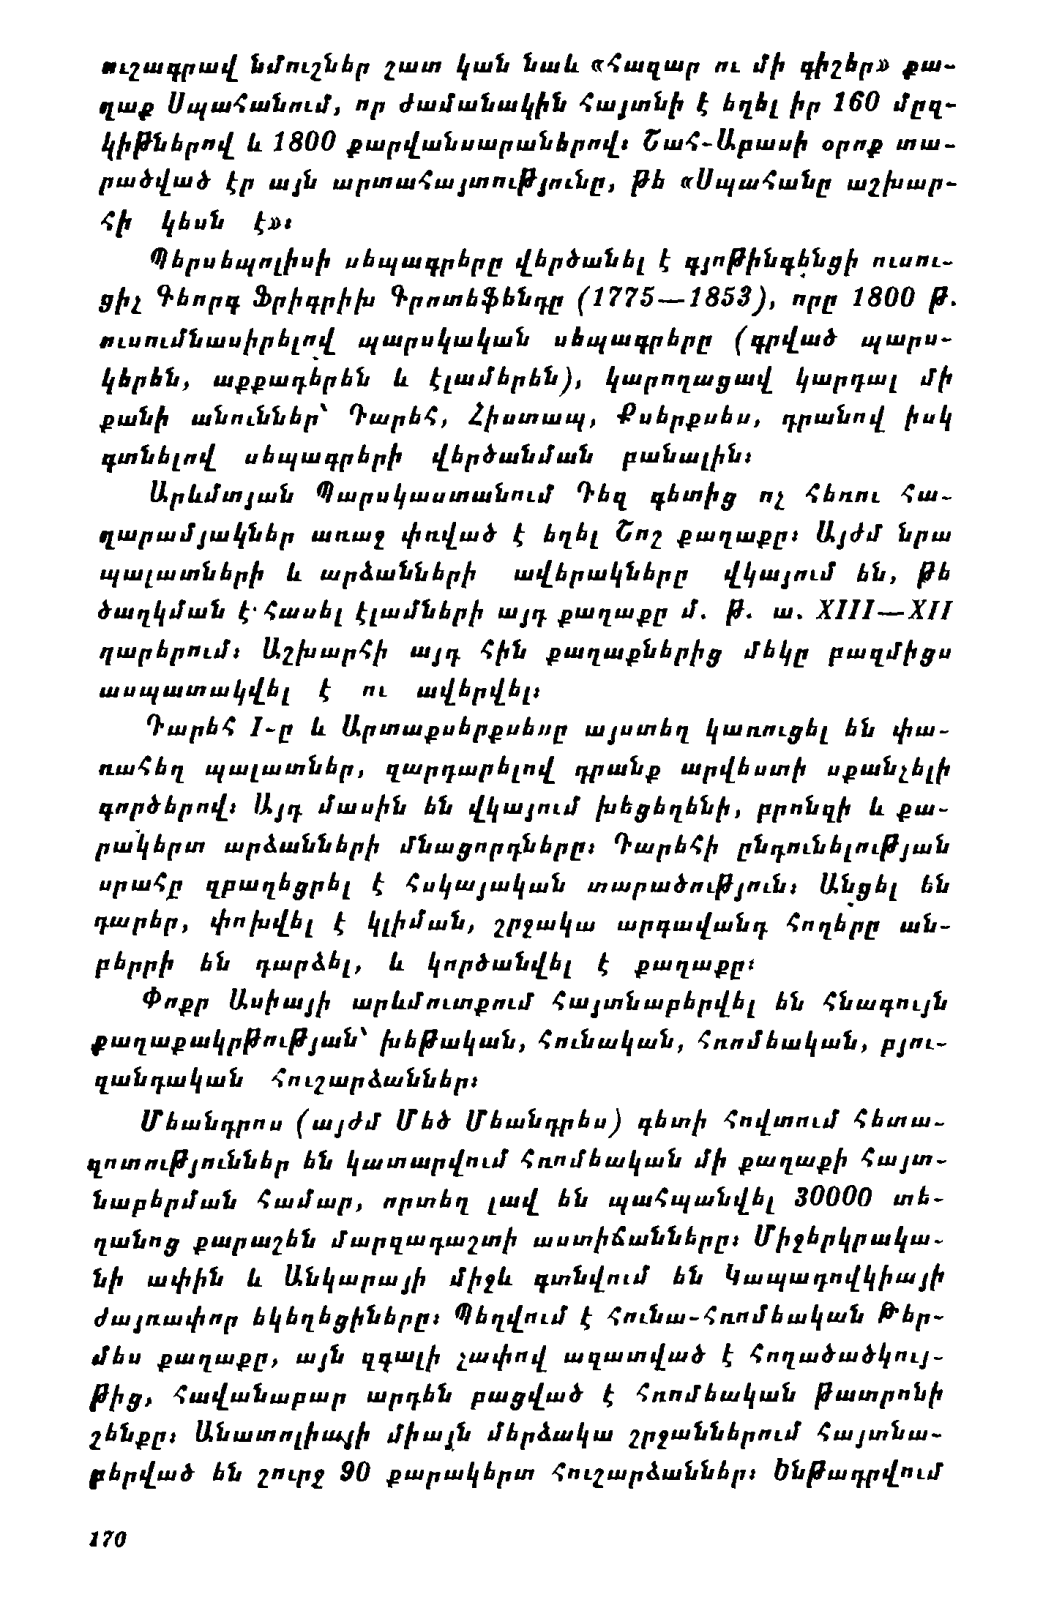 ուշագրավ նմուշներ շատ կան նաև «Հազար ու մի գիշեր» քա-
ղաք Սպահանում, որ ժամանակին հայտնի է եղել իր 160 մըզ-
կիթներով և 1800 քարվանսարաներով։ Շահ-Աբասի օրոք տա-
րածված էր այն արտահայտությունը, թե «Սպահանը աշխար-
հի կեսն է»։
Պերսեպոլիսի սեպագրերը վերծանել է գյոթինգենցի ուսու-
ցիչ Գեորգ Ֆրիգրիխ Գրոտեֆենդը (1775—1853), որը 1800 թ.
ուսումնասիրելով պարսկական սեպագրերը (գրված պարս-
կերեն, աքքադերեն և էլամերեն), կարողացավ կարդալ մի
քանի անուններ՝ Դարեհ, Հիստապ, Քսերքսես, դրանով իսկ
գտնելով սեպագրերի վերծանման բանալին։
Արևմտյան Պարսկաստանում Դեզ գետից ոչ հեռու հա-
զարամյակներ առաջ փռված է եղել Շոշ քաղաքը։ Այժմ նրա
պալատների և արձանների ավերակները վկայում են, թե
ծաղկման է հասել էլամների այդ քաղաքը մ. թ. ա. XIII—XII
դարերում։ Աշխարհի այդ հին քաղաքներից մեկը բազմիցս
ասպատակվել է ու ավերվել։
Դարեհ I-ը և Արտաքսերքսեսը այստեղ կառուցել են փա-
ռահեղ պալատներ, զարդարելով դրանք արվեստի սքանչելի
գործերով։ Այդ մասին են վկայում խեցեղենի, բրոնզի և քա-
րակերտ արձանների մնացորդները։ Դարեհի ընդունելության
սրահը զբաղեցրել է հսկայական տարածություն։ Անցել են
դարեր, փոխվել է կլիման, շրջակա արգավանդ հողերը ան-
բերրի են դարձել, և կործանվել է քաղաքը։
Փոքր Ասիայի արևմուտքում հայտնաբերվել են հնագույն
քաղաքակրթության՝ խեթական, հունական, հռոմեական, բյու-
զանդական հուշարձաններ։
Մեանդրոս (այժմ Մեծ Մեանդրես) գետի հովտում հետա-
զոտություններ են կատարվում հռոմեական մի քաղաքի հայտ-
նաբերման համար, որտեղ լավ են պահպանվել 30000 տե-
ղանոց քարաշեն մարզադաշտի աստիճանները։ Միջերկրակա-
նի ափին և Անկարայի միջև գտնվում են Կապադովկիայի
ժայռափոր եկեղեցիները։ Պեղվում է հունա-հռոմեական Թեր-
մես քաղաքը, այն զգալի չափով ազատված է հողածածկույ-
թից, հավանաբար արդեն բացված է հռոմեական թատրոնի
շենքը։ Անատոլիայի միայն մերձակա շրջաններում հայտնա-
բերված են շուրջ 90 քարակերտ հուշարձաններ։ Ենթադրվում
170